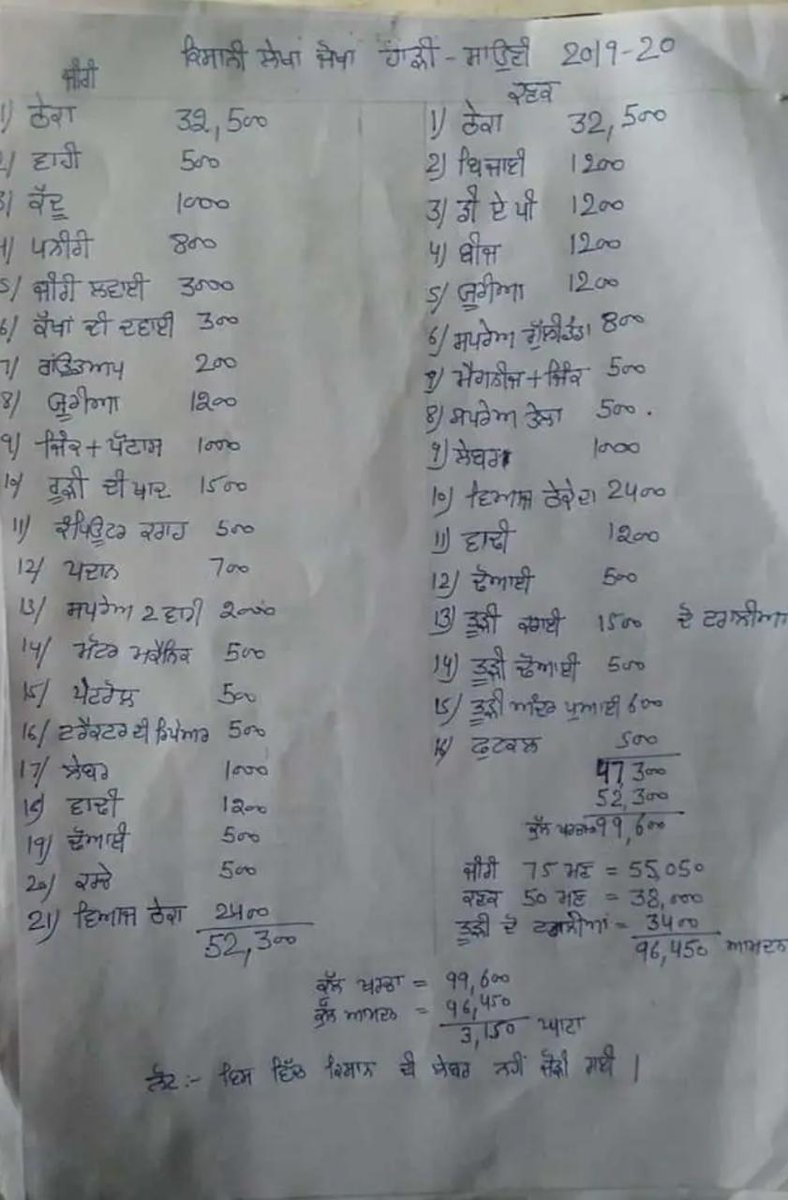 ਕਿਸਾਨੀ ਲੇਖਾ ਜੋਖਾ ਹਾੜੀ - ਸਾਉਣੀ 2019-20
ਜੀਰੀ
1) ਠੇਕਾ 32,500
2) ਵਾਹੀ 500
3) ਕੱਦੂ 1000
4) ਪਨੀਰੀ 800
5) ਜੀਰੀ ਲਵਾਈ 3000
6) ਕੱਖਾਂ ਦੀ ਦਵਾਈ 300
7) ਰਾਂਊਡਅਪ 200
8) ਯੂਰੀਆ 1200
9) ਜਿੰਕ + ਪੋਟਾਸ 1000
10) ਰੂੜੀ ਦੀ ਖਾਦ 1500
11) ਕੰਪਿਊਟਰ ਕਰਾਹ 500
12) ਪਦਾਨ 700
13) ਸਪਰੇਅ 2 ਵਾਰੀ 2000
14) ਮੋਟਰ ਮਕੈਨਿਕ 500
15) ਪੈਟਰੋਲ 500
16) ਟਰੈਕਟਰ ਦੀ ਰਿਪੇਅਰ 500
17) ਲੇਬਰ 1000
18) ਵਾਢੀ 1200
19) ਢੋਆਈ 500
20) ਕਰਚੇ 500
21) ਵਿਆਜ ਠੇਕਾ 2400
52,300
ਕਣਕ
1) ਠੇਕਾ 32,500
2) ਬਿਜਾਈ 1200
3) ਡੀ ਏ ਪੀ 1200
4) ਬੀਜ 1200
5) ਯੂਰੀਆ 1200
6) ਸਪਰੇਅ ਗੁੱਲੀਡੰਡਾ 800
7) ਮੈਗਨੀਜ + ਜਿੰਕ 500
8) ਸਪਰੇਅ ਤੇਲਾ 500
9) ਲੇਬਰ 1000
10) ਵਿਆਜ ਠੇਕੇਦਾ 2400
11) ਵਾਢੀ 1200
12) ਢੋਆਈ 500
13) ਤੂੜੀ ਕਰਾਈ 1500 ਦੋ ਟਰਾਲੀਆ
14) ਤੂੜੀ ਢੋਆਈ 500
15) ਤੂੜੀ ਅੰਦਰ ਪੁਆਈ 600
16) ਫੁਟਕਲ 500
47,300
52,300
ਕੁੱਲ ਖਰਚਾ 99,600
ਜੀਰੀ 75 ਮਣ = 55,050
ਕਣਕ 50 ਮਣ = 38,000
ਤੂੜੀ ਦੋ ਟਰਾਲੀਆਂ = 3400
96,450 ਆਮਦਨ
ਕੁੱਲ ਖਰਚਾ = 99,600
ਕੁੱਲ ਆਮਦਨ = 96,450
3,150 ਘਾਟਾ
ਨੋਟ :- ਇਸ ਵਿੱਚ ਕਿਸਾਨ ਦੀ ਲੇਬਰ ਨਹੀਂ ਜੋੜੀ ਗਈ ।